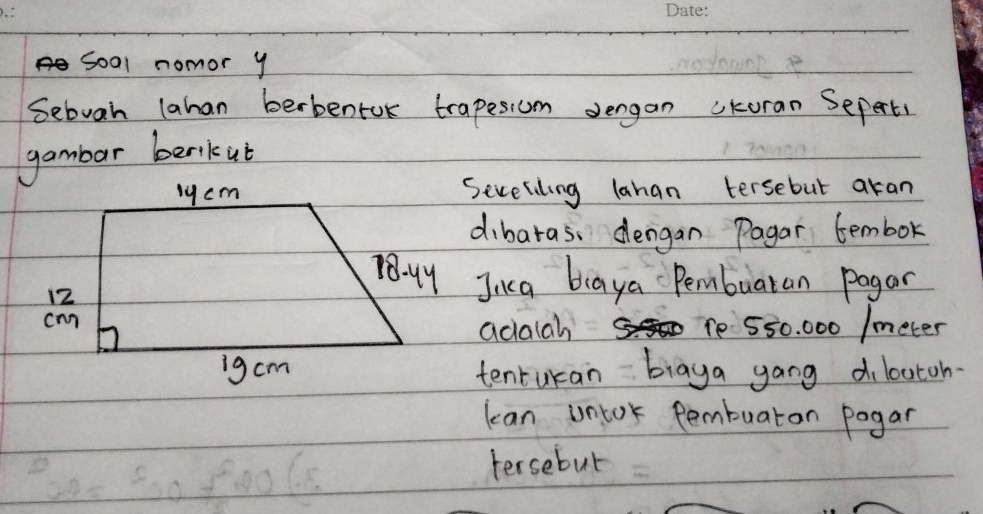 Date:
Soal nomor 4
Sebuah lahan berbentuk trapesium dengan ukuran seperti
gambar berikut
14 cm
12
cm
18.44
19 cm
Sekeliling lahan tersebut akan
dibatasi dengan Pagar tembok
Jika biaya Pembuatan pagar
adalah Rp 550.000 /meter
tentukan biaya yang dibutuh-
kan untuk Pembuatan pagar
tersebut